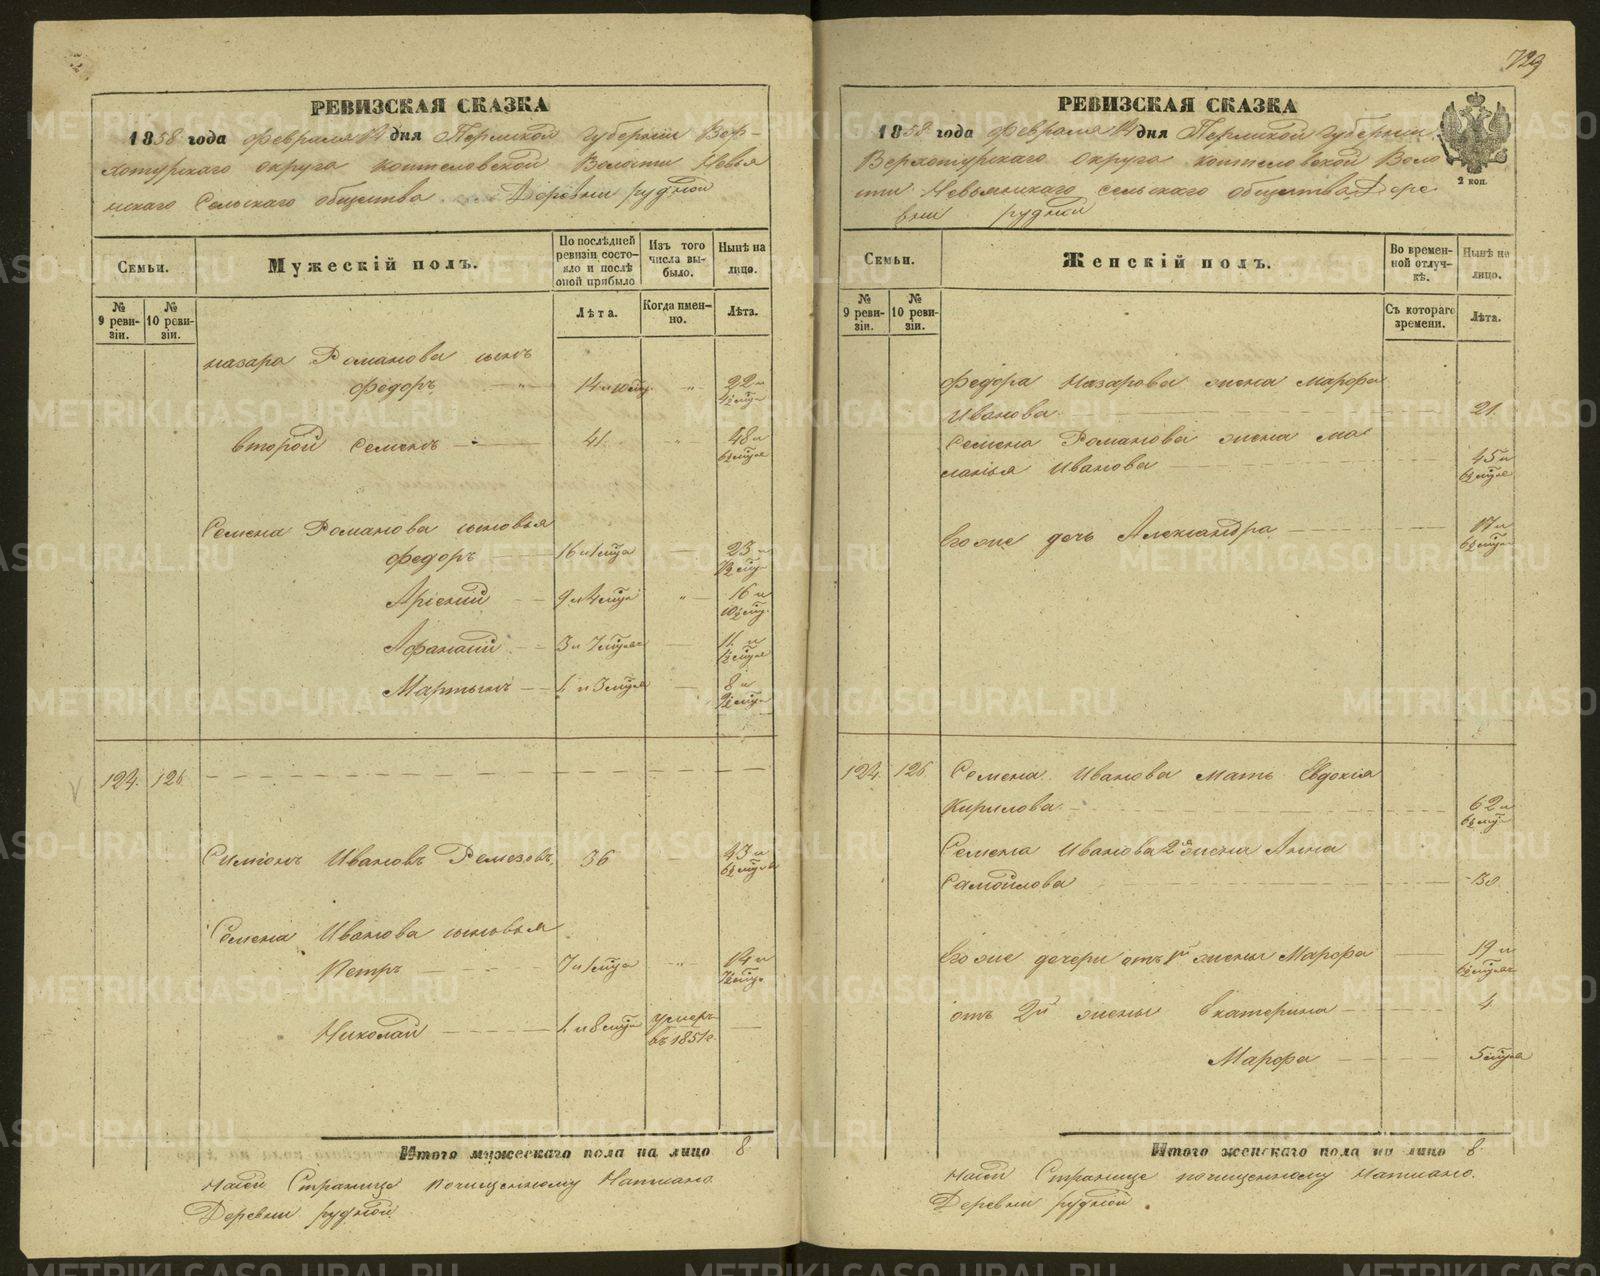 РЕВИЗСКАЯ СКАЗКА
1858 года Февраля 14 дня Пермской губернии Вер-
хотурскаго округа Коптеловской Волости Невья
нскаго Сельскаго общества Деревни рудной
Семьи.
Мужескій полъ.
По послѣдней ревизіи состо-яло и послѣ оной прибыло
Изъ того числа вы-было.
Нынѣ на лицо.
№ 9 реви-зіи.
№ 10 реви-зіи.
Лѣта.
Когда имен-но.
Лѣта.
назара Романова сынъ
Федоръ 14 и 10 мѣц. " 22 и
4½ мѣця
второй Семенъ 41 " 48 и
6½ мѣця
Семена Романова сыновья
Федоръ 16 и 1 мѣца 23 и
7½ мѣця
Арсений 9 и 4 мѣця " 16 и
10½ мѣц.
Афанасий 3 и 7 мѣцев 11 и
1½ мѣця
Мартынъ 1 и 3 мѣця 8 и
9½ мѣця
124. 126
Симионъ Ивановъ Ремезовъ 36 43 и
6½ мѣця
Семена Иванова сыновья
Петръ 7 и 1 мѣца " 14 и
7½ мѣця
Николай 1 и 8 мѣця умеръ
въ 1851 г.
Итого мужескаго пола на лицо 8
На сей Странице почищенному Написано
Деревни рудной
729
РЕВИЗСКАЯ СКАЗКА
1858 года Февраля 14 дня Пермской губернии
Верхотурскаго округа Коптеловской Воло
сти Невьянскаго сельскаго общества Дере
вни рудной
2 коп.
Семьи.
Женскій полъ.
Во времен-ной отлуч-кѣ.
Нынѣ на лицо.
№ 9 реви-зіи.
№ 10 реви-зіи.
Съ котораго времени.
Лѣта.
Федора Назарова жена Марфа
Иванова 21.
Семена Романова жена Ма
ланья Иванова 45 и
6½ мѣця
Его же дочь Александра 17 и
6½ мѣця
124. 126 Семена Иванова Мать Евдокія
Кирилова 62 и
6½ мѣця
Семена Иванова 2я жена Анна
Самойлова 30
Его же дочери отъ 1й жены Марфа 19 и
6½ мѣця
отъ 2й жены Екатерина 4
Марфа 5 мѣця
Итого женскаго пола на лицо 8
На сей Странице почищенному написано.
Деревни рудной
METRIKI.GASO-URAL.RU